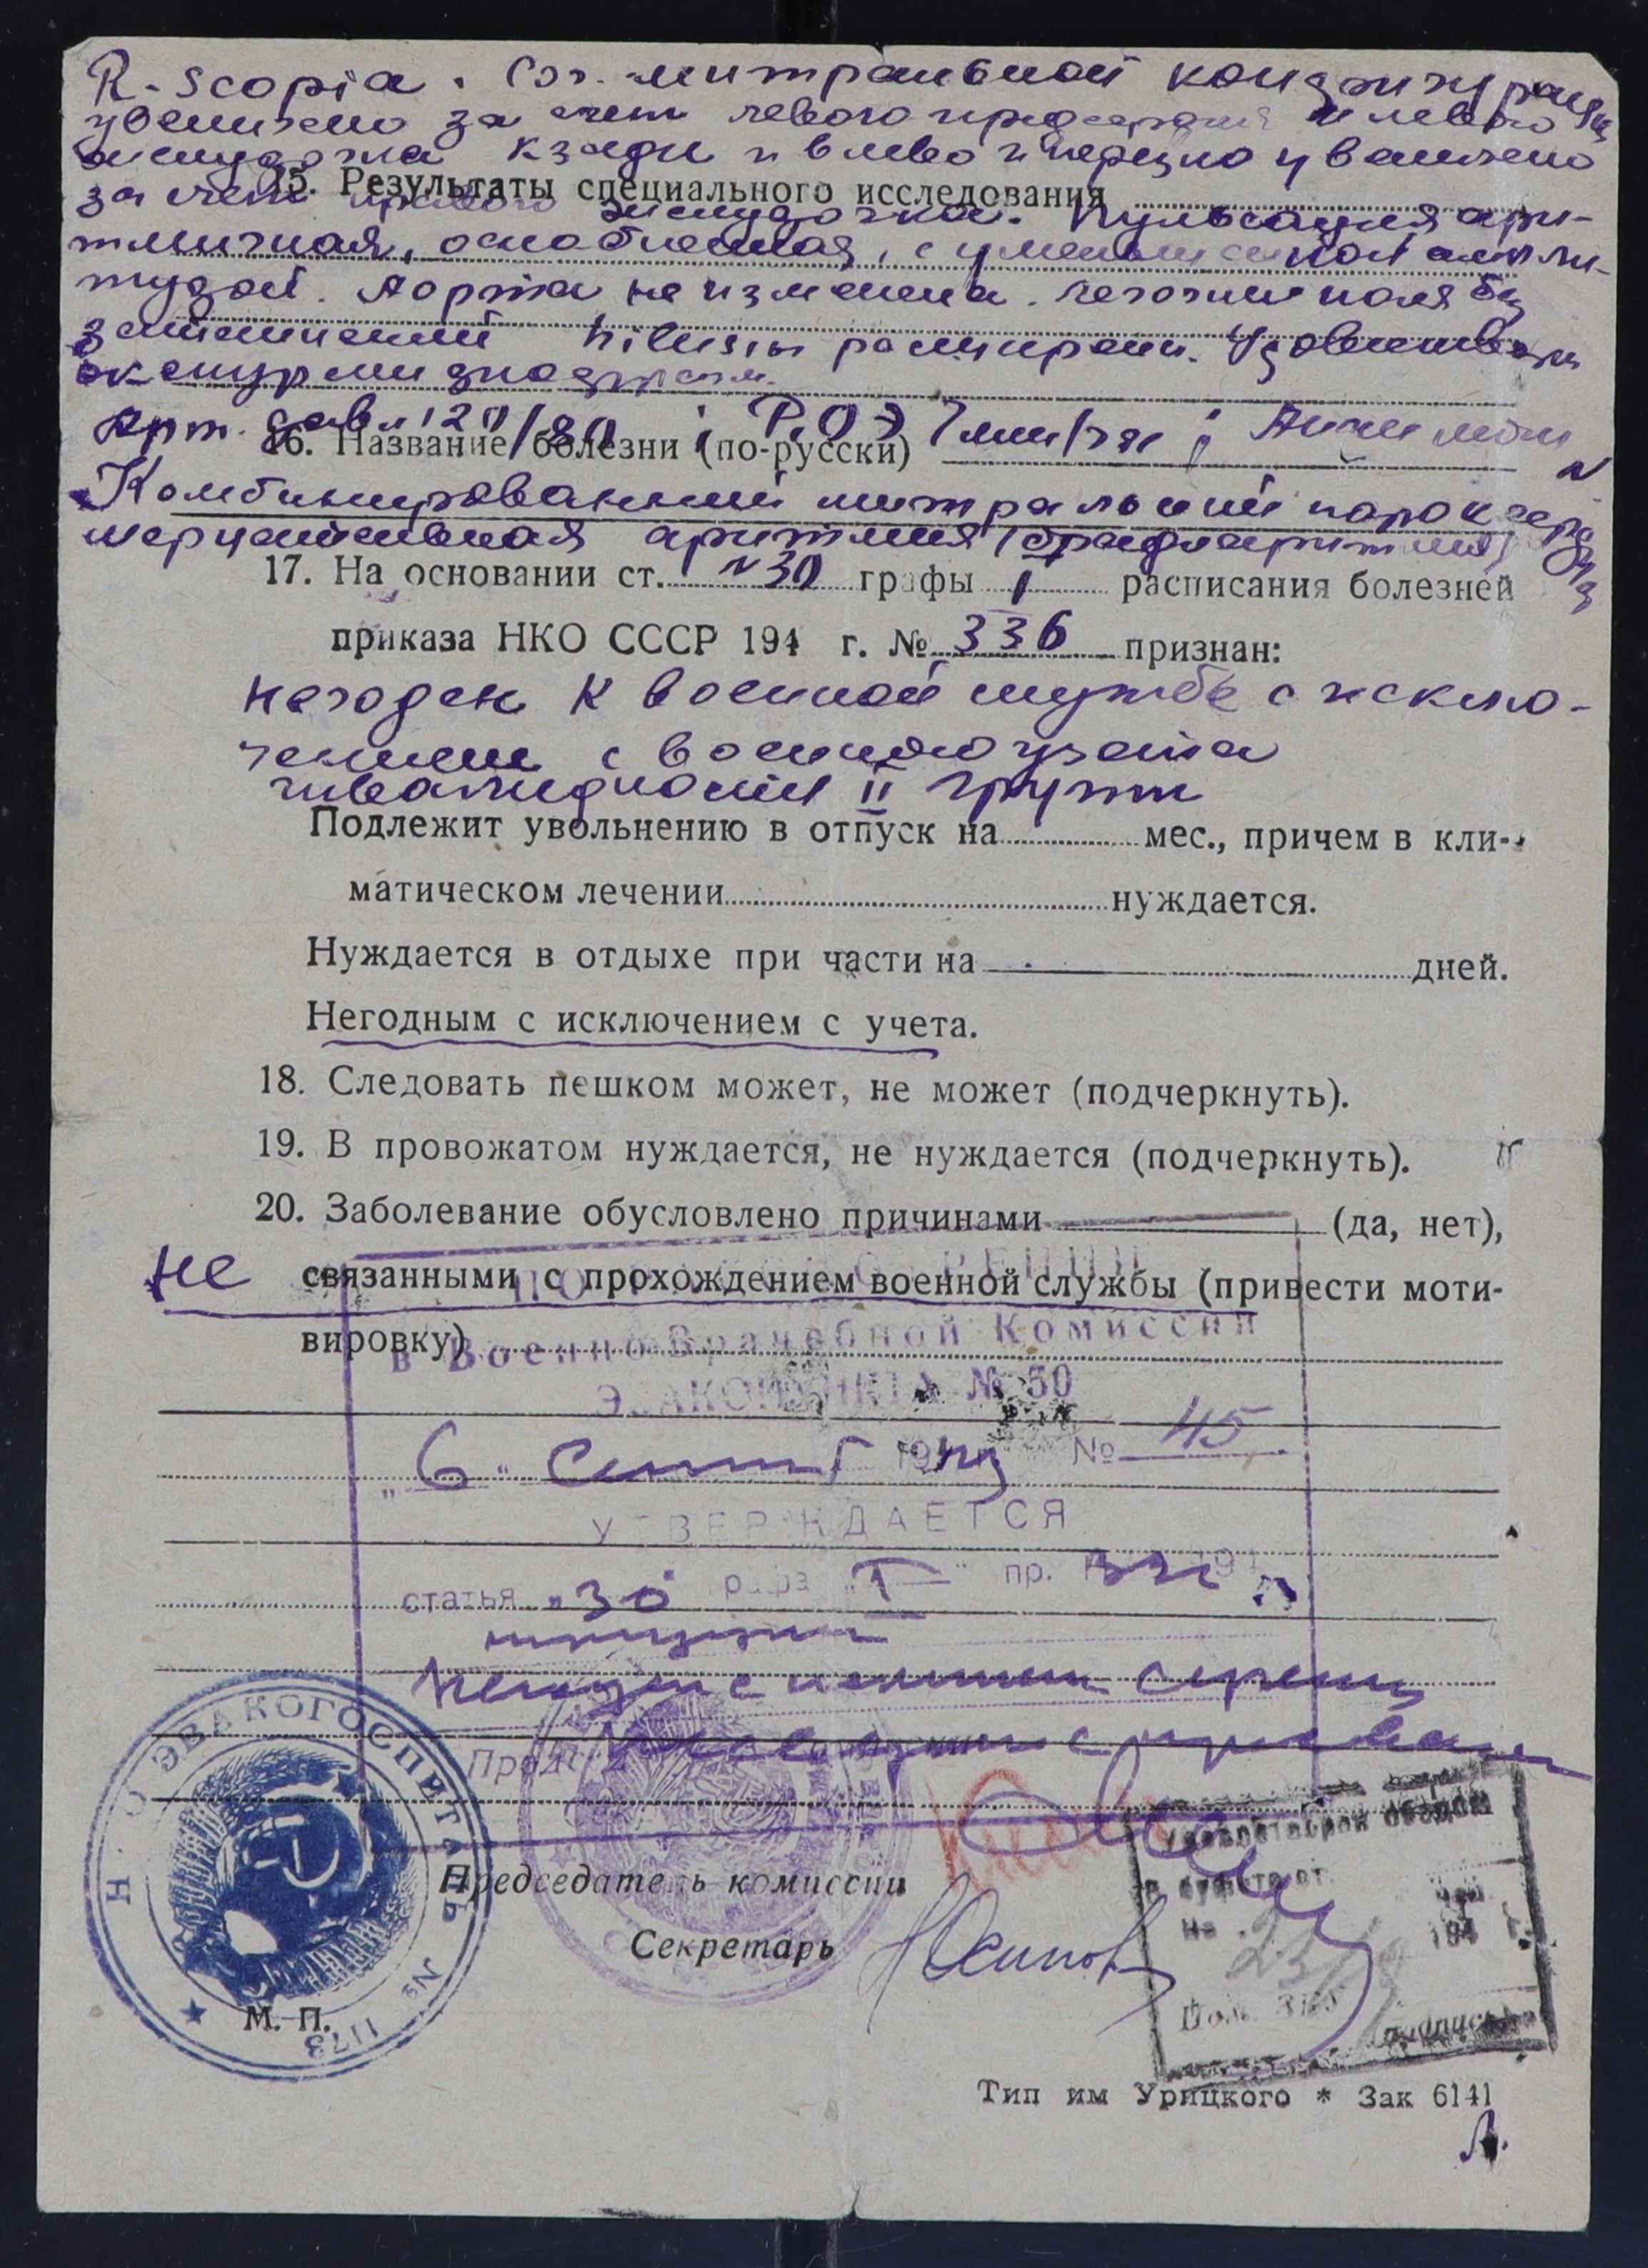 R-scopia. Cor. митральной конфигурации
увеличено за счет левого предсердия и левого
желудочка кзади и влево и нерезко увеличено
15. Результаты специального исследования
за счет правого желудочка. Пульсация арит-
тмичная, ослабленная, с уменьшенной ампли-
тудой. Аорта не изменена. Легочные поля без
затемнений hilusы расширены. Удовлетвор.
экскурсии диафрагм.
Арт. давл 120/80; РОЭ 7 мм/час; Анализ мочи N
16. Название болезни (по-русски)
Комбинированный митральный порок сердца
мерцательная аритмия (брадиаритмия)
17. На основании ст. N 30 графы I расписания болезней
приказа НКО СССР 194 г. № 336 признан:
Негоден к военной службе с исклю-
чением с военного учета
инвалидности II группы
Подлежит увольнению в отпуск на мес., причем в кли-
матическом лечении нуждается.
Нуждается в отдыхе при части на дней.
Негодным с исключением с учета.
18. Следовать пешком может, не может (подчеркнуть).
19. В провожатом нуждается, не нуждается (подчеркнуть).
20. Заболевание обусловлено причинами (да, нет),
не связанными с прохождением военной службы (привести моти-
вировку)
в Военно-Врачебной Комиссии
№ 50
"6" Сент 1943 № 45
УТВЕРЖДАЕТСЯ
статья "30" I пр. 336
Негоден с
Пред
Председатель комиссии
Секретарь Осипов
Н О ЭВАКОГОСПИТАЛЬ № 1173
М. П.
обедом
На 23 194 г.
подпись
Тип им Урицкого * Зак 6141